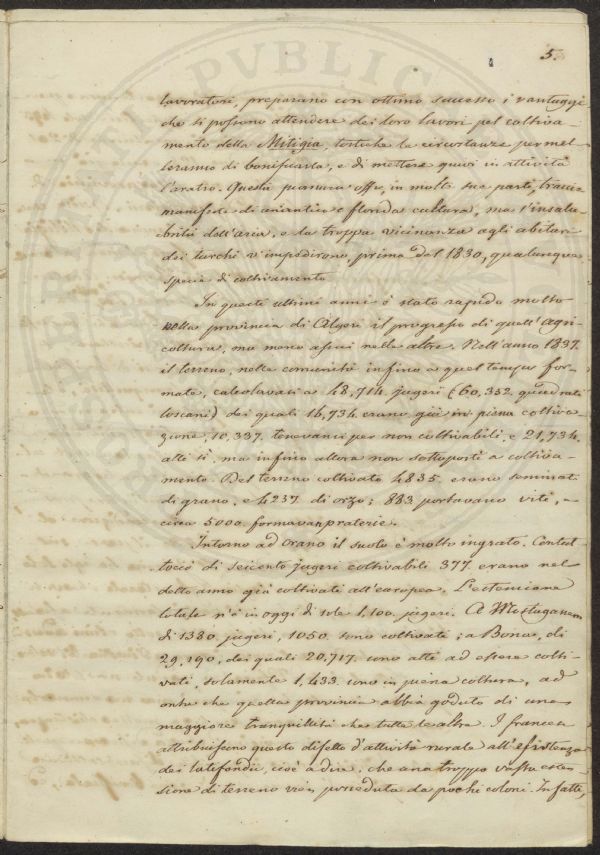 5.
lavoratori, preparano con ottimo successo i vantaggi
che si possono attendere dei loro lavori pel coltiva-
mento della Mitigia, tostochè le circostanze permet-
teranno di bonificarla, e di mettere quivi in attività
l'aratro. Questa pianura offre, in molte sue parti, traccie
manifeste di un'antica e florida cultura, ma l'insalu-
brità dell'aria, e la troppa vicinanza agli abituri
dei turchi v'impedirono, prima del 1830, qualunque
specie di coltivamento.
In questi ultimi anni è stato rapido molto
nella provincia di Algeri il progresso di quell'agri-
coltura, ma meno assai nelle altre. Nell'anno 1837.
il terreno, nelle comunità infino a quel tempo for-
mate, calcolavasi a 48,714. jugeri (60,352. quadrati
toscani) dei quali 16,734 erano già in piena coltiva-
zione, 10,337. tenevansi per non coltivabili, e 21,734.
atti sì, ma infino allora non sottoposti a coltiva-
mento. Del terreno coltivato 4835. erano seminati
di grano, e 4237. di orzo; 883. portavano viti, e
circa 5000. formavan praterie.
Intorno ad Orano il suolo è molto ingrato. Contut-
tociò di seicento jugeri coltivabili 377. erano nel
detto anno già coltivati all'europea. L'estensione
totale n'è in oggi di sole 1,100. jugeri. A Mostaganem
di 1380 jugeri, 1050. sono coltivati; a Bona, di
29,190, dei quali 20,717. sono atti ad essere colti-
vati, solamente 1,433. sono in piena coltura, ad
onta che quella provincia abbia goduto di una
maggiore tranquillità che tutte le altre. I francesi
attribuiscono questo difetto d'attività rurale all'esistenza
dei latifondii, cioè a dire, che una troppo vasta esten-
sione di terreno vien posseduta da pochi coloni. In fatti,